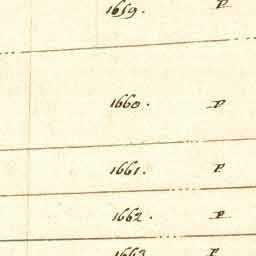 1659. P
1660. P
1661. P
1662. P
1663 P